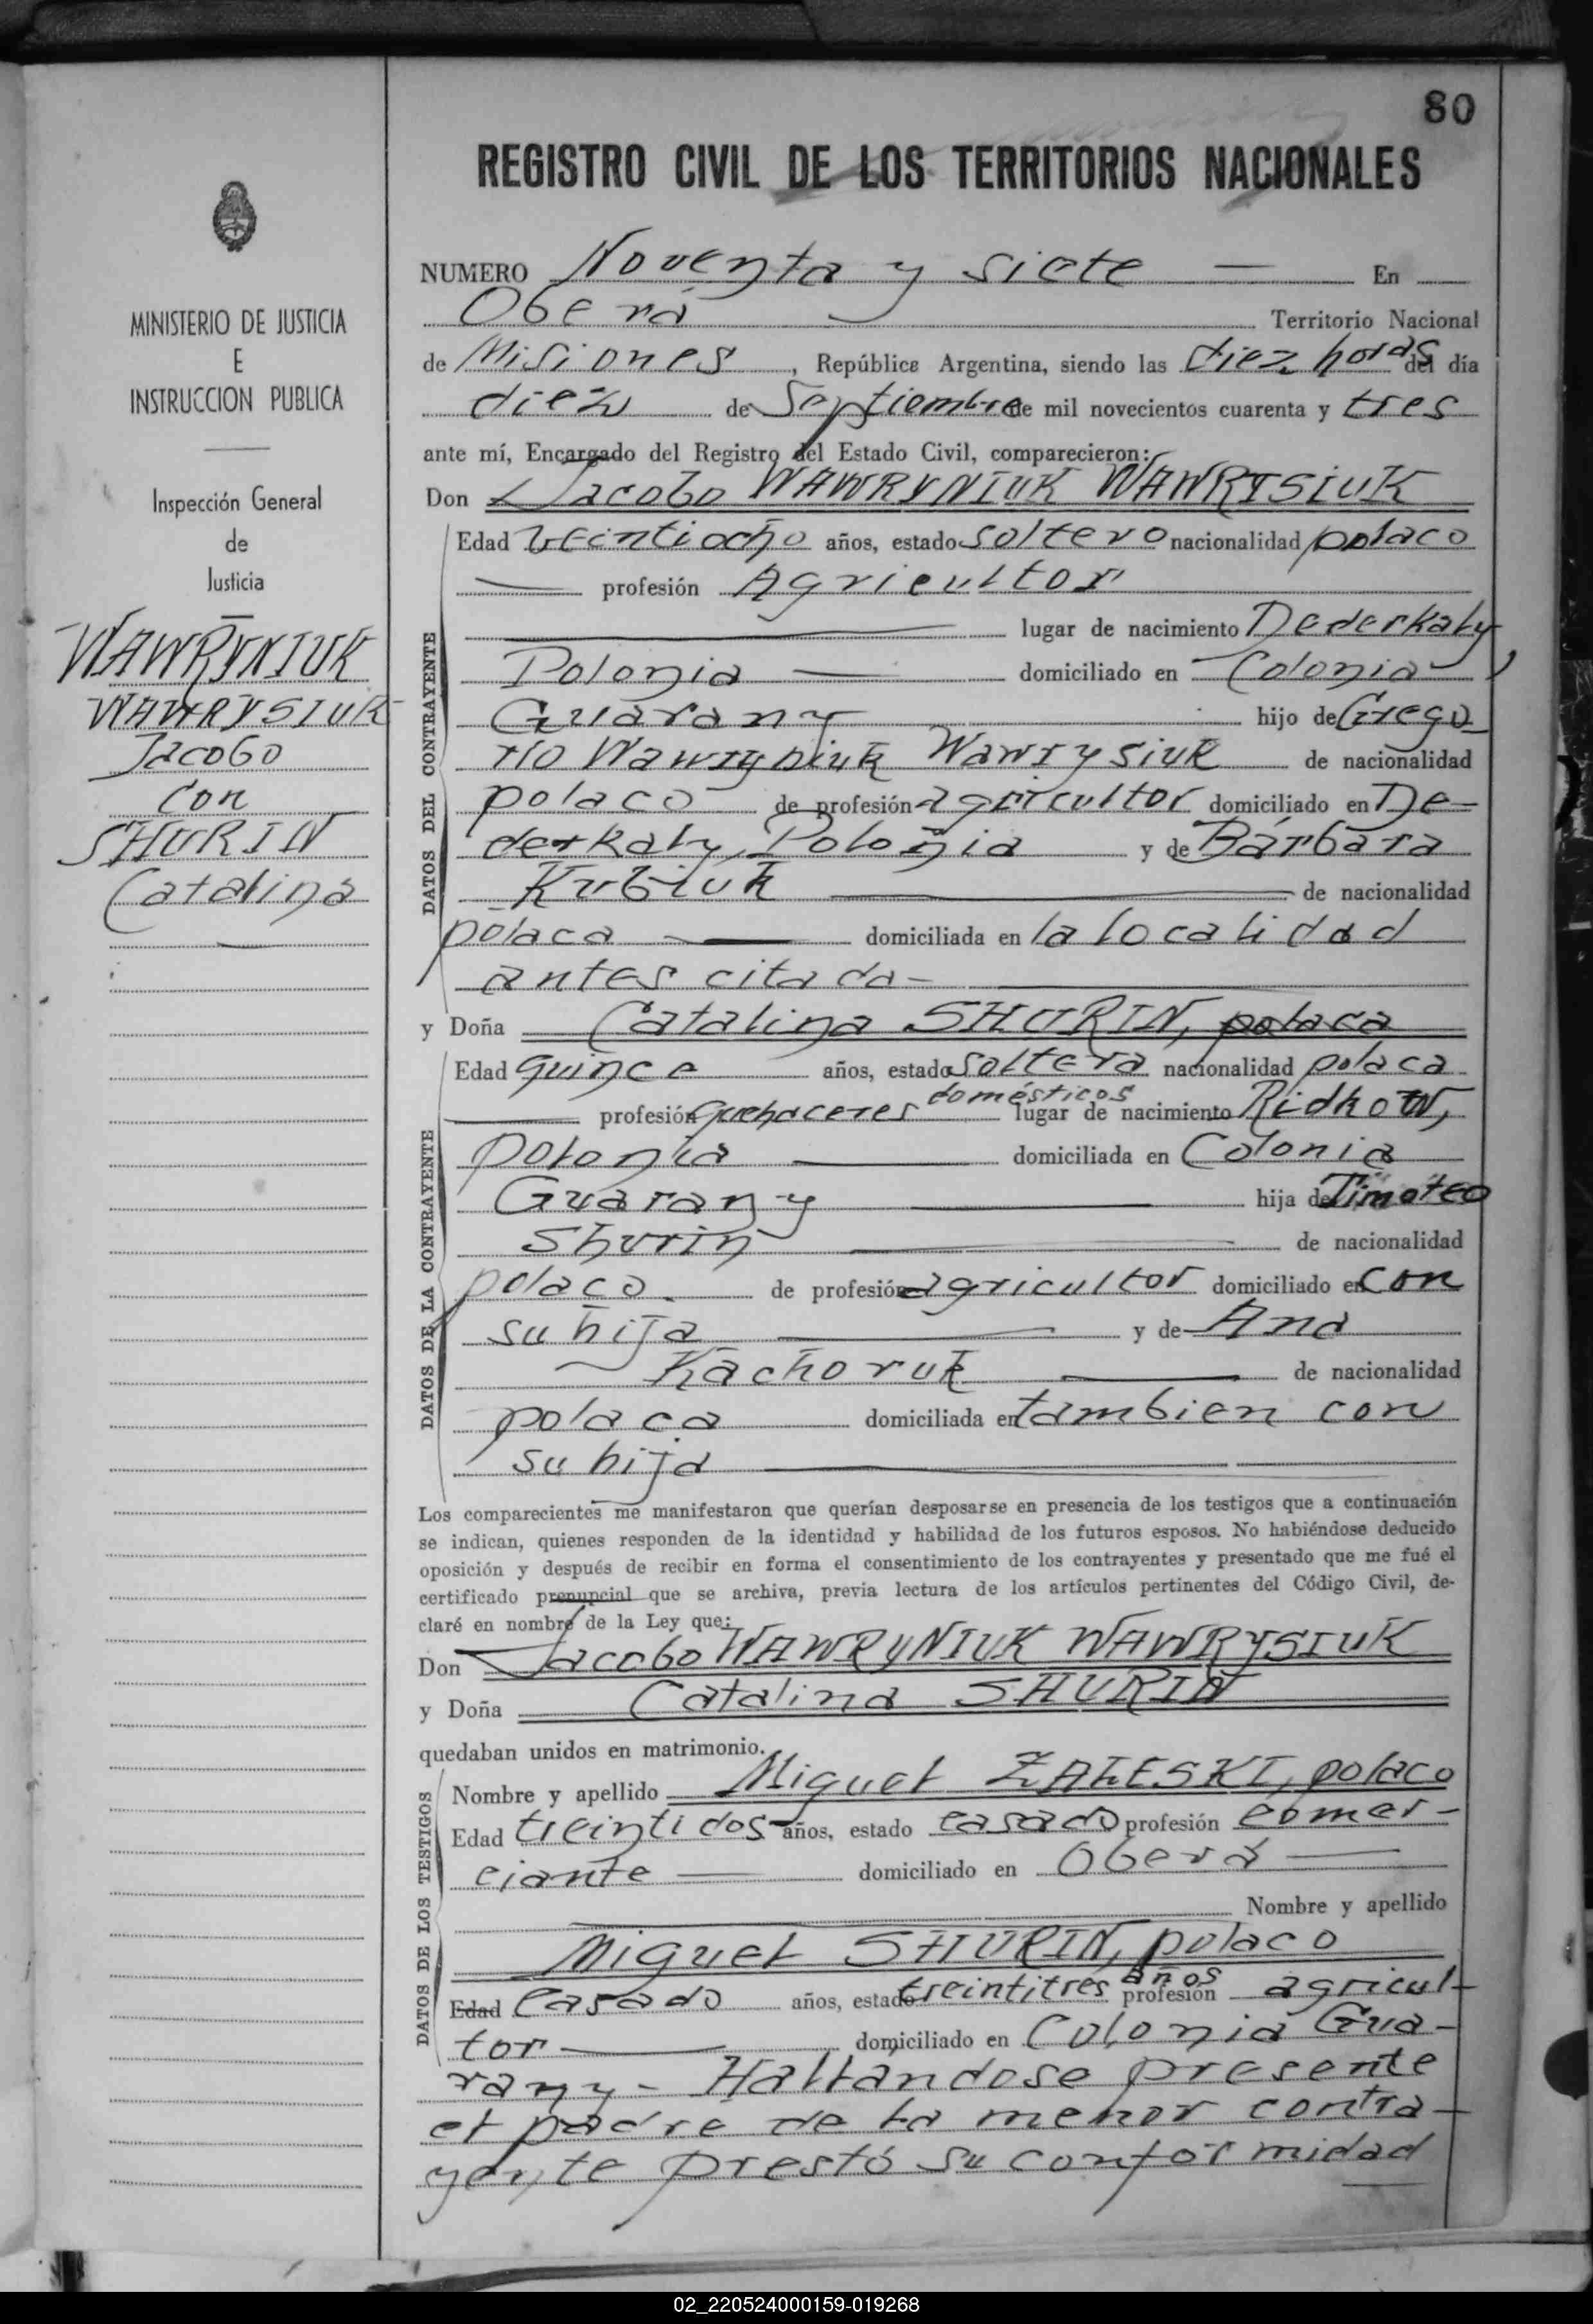 80
REGISTRO CIVIL DE LOS TERRITORIOS NACIONALES
MINISTERIO DE JUSTICIA
E
INSTRUCCION PUBLICA
Inspección General
de
Justicia
WAWRYNIUK
WAWRYSIUK
Jacobo
con
SHURIN
Catalina
NUMERO Noventa y siete — En
Oberá Territorio Nacional
de Misiones, República Argentina, siendo las diez horas del día
diez de Septiembre de mil novecientos cuarenta y tres
ante mí, Encargado del Registro del Estado Civil, comparecieron:
Don Jacobo WAWRYNIUK WAWRYSIUK
DATOS DEL CONTRAYENTE
Edad veintiocho años, estado soltero nacionalidad polaco
— profesión Agricultor
lugar de nacimiento Dederkaly,
Polonia — domiciliado en Colonia
Guarany hijo de Grego
rio Wawryniuk Wawrysiuk de nacionalidad
polaco de profesión agricultor domiciliado en De-
derkaly, Polonia y de Bárbara
Kubiuk — de nacionalidad
polaca — domiciliada en la localidad
antes citada-
y Doña Catalina SHURIN, polaca
DATOS DE LA CONTRAYENTE
Edad quince años, estado soltera nacionalidad polaca
— profesión quehaceres domésticos lugar de nacimiento Ridkow,
Polonia — domiciliada en Colonia
Guarany — hija de Timoteo
Shurin — de nacionalidad
polaco. de profesión agricultor domiciliado en con
su hija — y de Ana
Kachoruk — de nacionalidad
polaca domiciliada en tambien con
su hija —
Los comparecientes me manifestaron que querían desposarse en presencia de los testigos que a continuación
se indican, quienes responden de la identidad y habilidad de los futuros esposos. No habiéndose deducido
oposición y después de recibir en forma el consentimiento de los contrayentes y presentado que me fué el
certificado prenupcial que se archiva, previa lectura de los artículos pertinentes del Código Civil, de-
claré en nombre de la Ley que:
Don Jacobo WAWRYNIUK WAWRYSIUK
y Doña Catalina SHURIN
quedaban unidos en matrimonio.
DATOS DE LOS TESTIGOS
Nombre y apellido Miguel ZALESKI, polaco
Edad treintidos años, estado casado profesión comer-
ciante — domiciliado en Oberá —
Nombre y apellido
Miguel SHURIN, polaco
Edad casado años, estado treintitres años profesión agricul-
tor — domiciliado en Colonia Gua-
rany- Hallandose presente
el padre de la menor contra-
yente prestó su conformidad
02_220524000159-019268